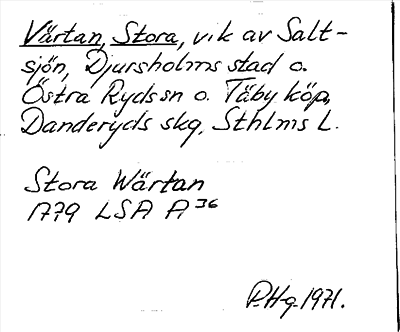 Värtan, Stora, vik av Salt-
sjön, Djursholms stad o.
Östra Ryds sn o. Täby köp,
Danderyds skg, Sthlms L.
Stora Wärtan
1779 LSA A 36
P.Hg. 1971.